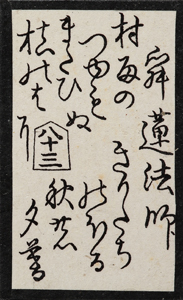 寂蓮法師
村雨の
つゆも
またひぬ
槙のは
に
きりたち
のほる
秋の
夕暮
八十三